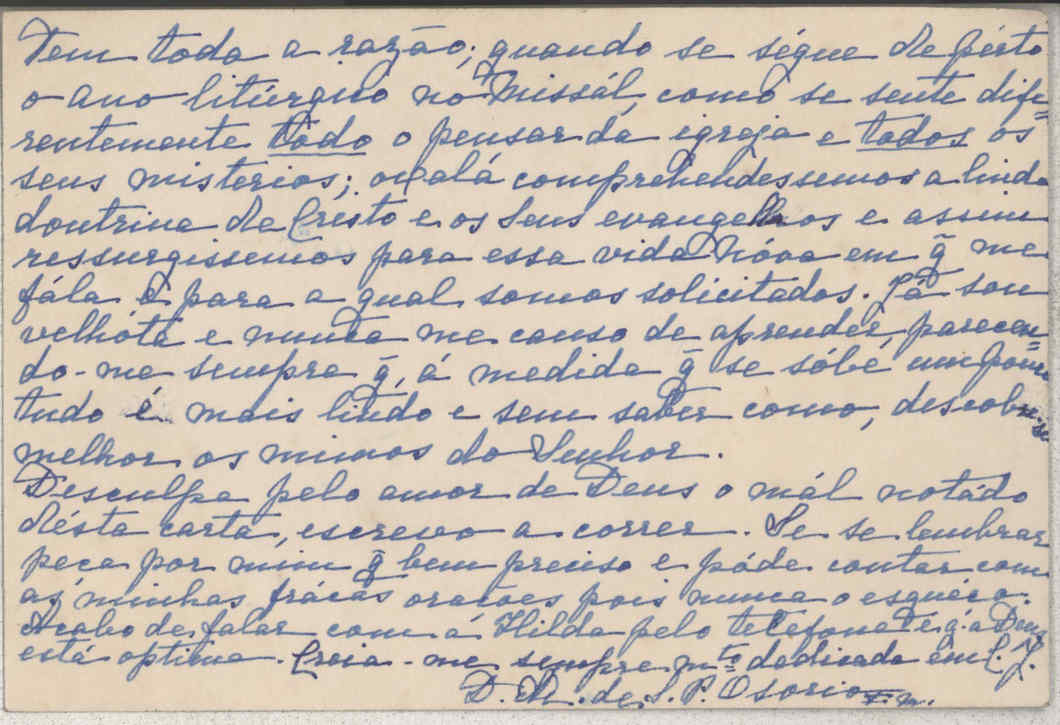 Tem toda a razão; quando se ségue de pérto
o ano litúrgico no Missál, como se sente dife=
rentemente todo o pensar da igreja e todos os
seus misterios; oxalá comprehendessemos a linda
doutrina de Cristo e os Seus evangelhos e assim
ressurgissemos para essa vida nóva em q̃ me
fála e para a qual somos solicitados. Já sou
velhóta e nunca me canso de aprender, parecen=
do-me sempre q̃, á medida q̃ se sóbe um pouco
tudo é mais lindo e sem saber como, descobre-se
melhor os mimos do Senhor.
Desculpe pelo amor de Deus o mál notádo
désta carta, escrevo a correr. Se se lembrar
peça por mim q̃ bem preciso e póde contar com
as minhas frácas orações pois nunca o esqueço.
Acabo de falar com a Hilda pelo telefone e g.ª a Deus
está optima. Creia-me sempre m.to dedicada em C. J.
D. M. de S. P. Osorio